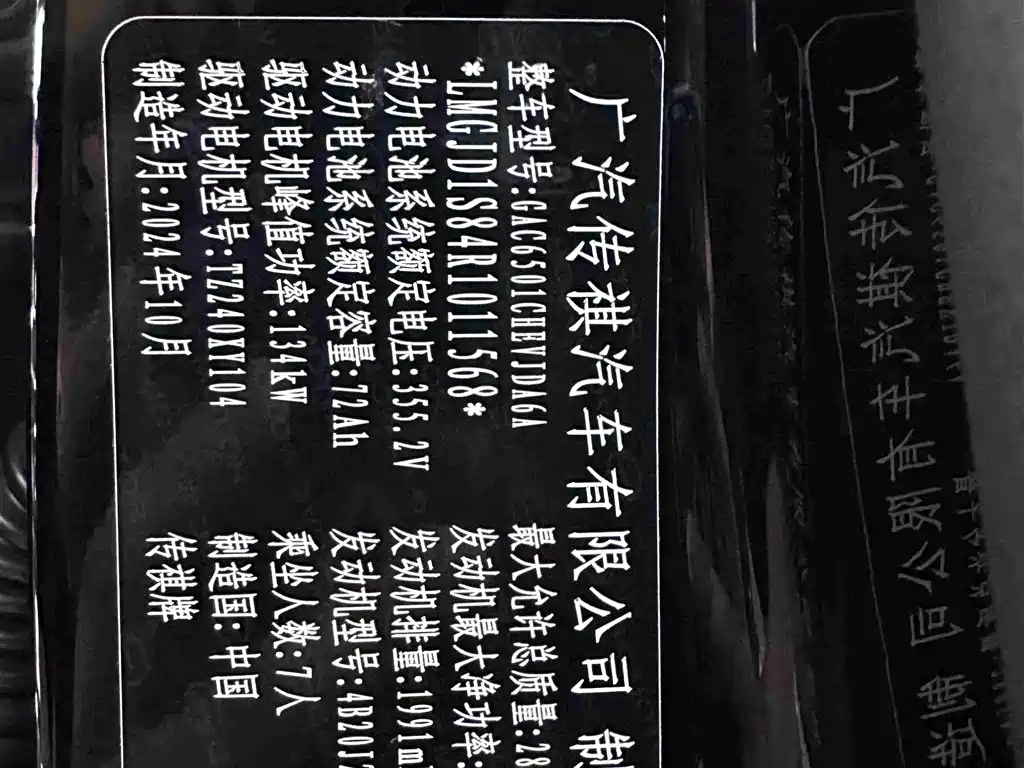 广汽传祺汽车有限公司 制
整车型号:GAC6501CHEVJDA6A
最大允许总质量:28
*LMGJD1S84R1011568*
发动机最大净功率:
动力电池系统额定电压:355.2V
发动机排量:1991m
动力电池系统额定容量:72Ah
发动机型号:4B20J
驱动电机峰值功率:134kW
乘坐人数:7人
驱动电机型号:TZ240XY104
制造国:中国
制造年月:2024年10月
传祺牌